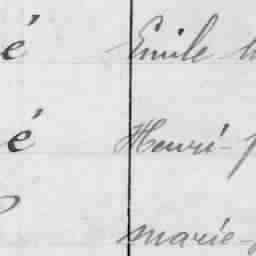 é Emile
é Henri-
marie-